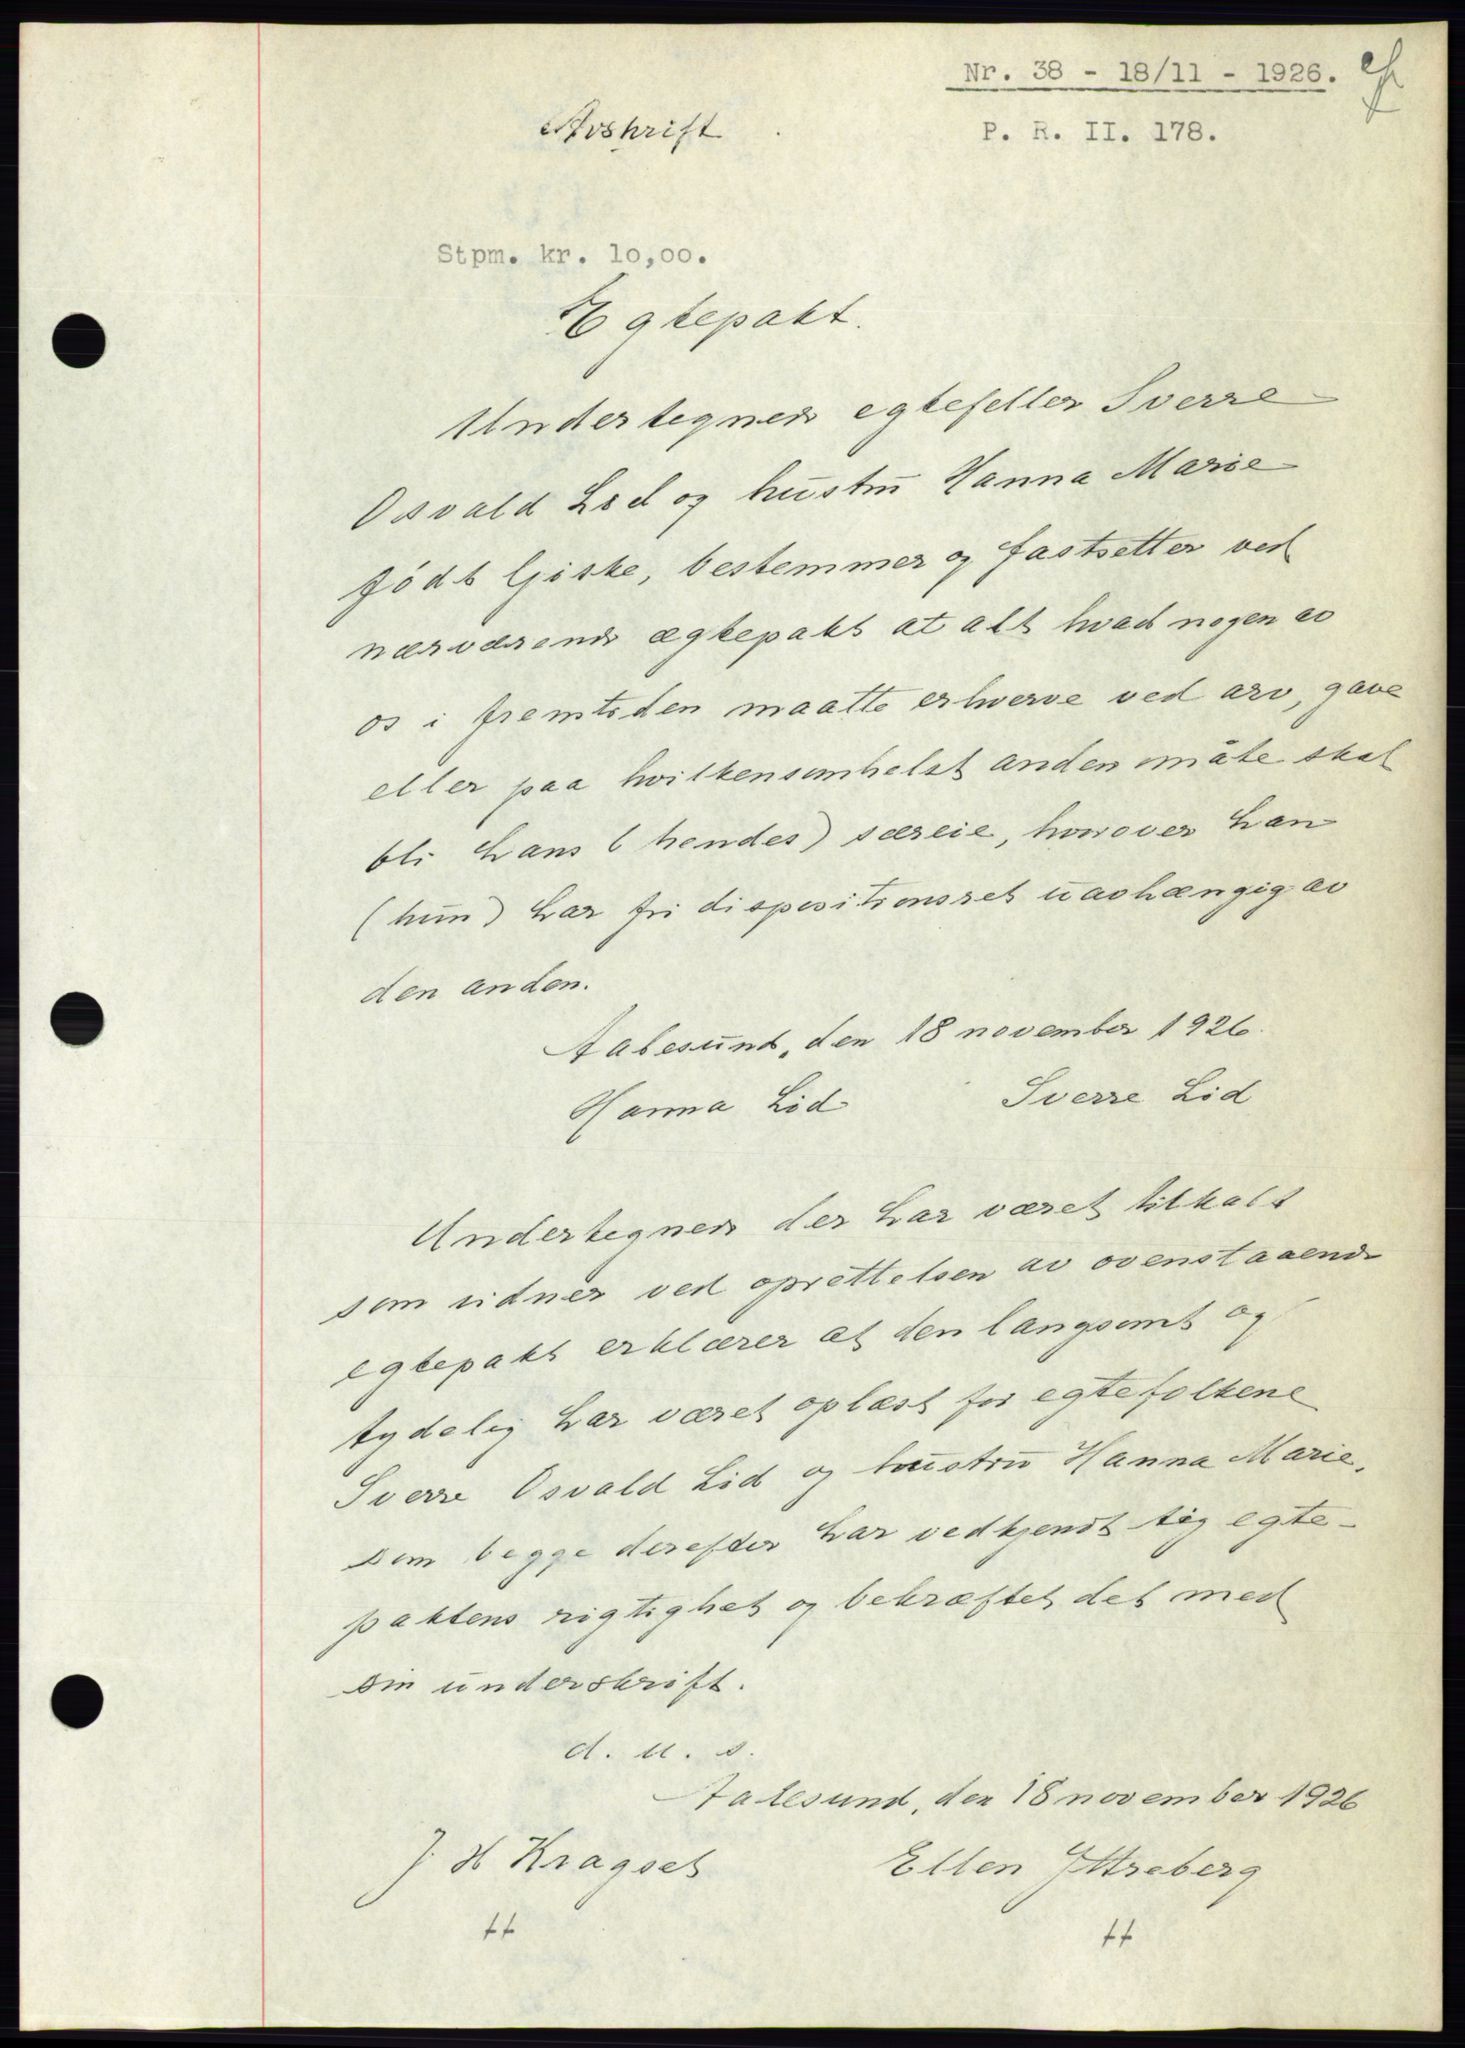 Nr. 38 - 18/11 - 1926.
Avskrift
P. R. II. 178.
Stpm. kr. 10,00.
Egtepakt.
Undertegnede egtefeller Sverre
Osvald Lid og hustru Hanna Marie
født Giske, bestemmer og fastsetter ved
nærværende ægtepakt at alt hvad nogen av
os i fremtiden maatte erhverve ved arv, gave
eller paa hvilkensomhelst anden måte skal
bli hans (hendes) særeie, hvorover han
(hun) har fri dispositionsret uavhængig av
den anden.
Aalesund, den 18 november 1926.
Hanna Lid Sverre Lid
Undertegnede der har været tilkalt
som vidner ved oprettelsen av ovenstaaende
egtepakt erklærer at den langsomt og
tydelig har været oplæst for egtefolkene
Sverre Osvald Lid og hustru Hanna Marie,
som begge derefter har vedkjendt sig egte-
paktens rigtighet og bekræftet det med
sin underskrift.
d. u. s.
Aalesund, den 18 november 1926
J. H Kragset Ellen Yttreberg